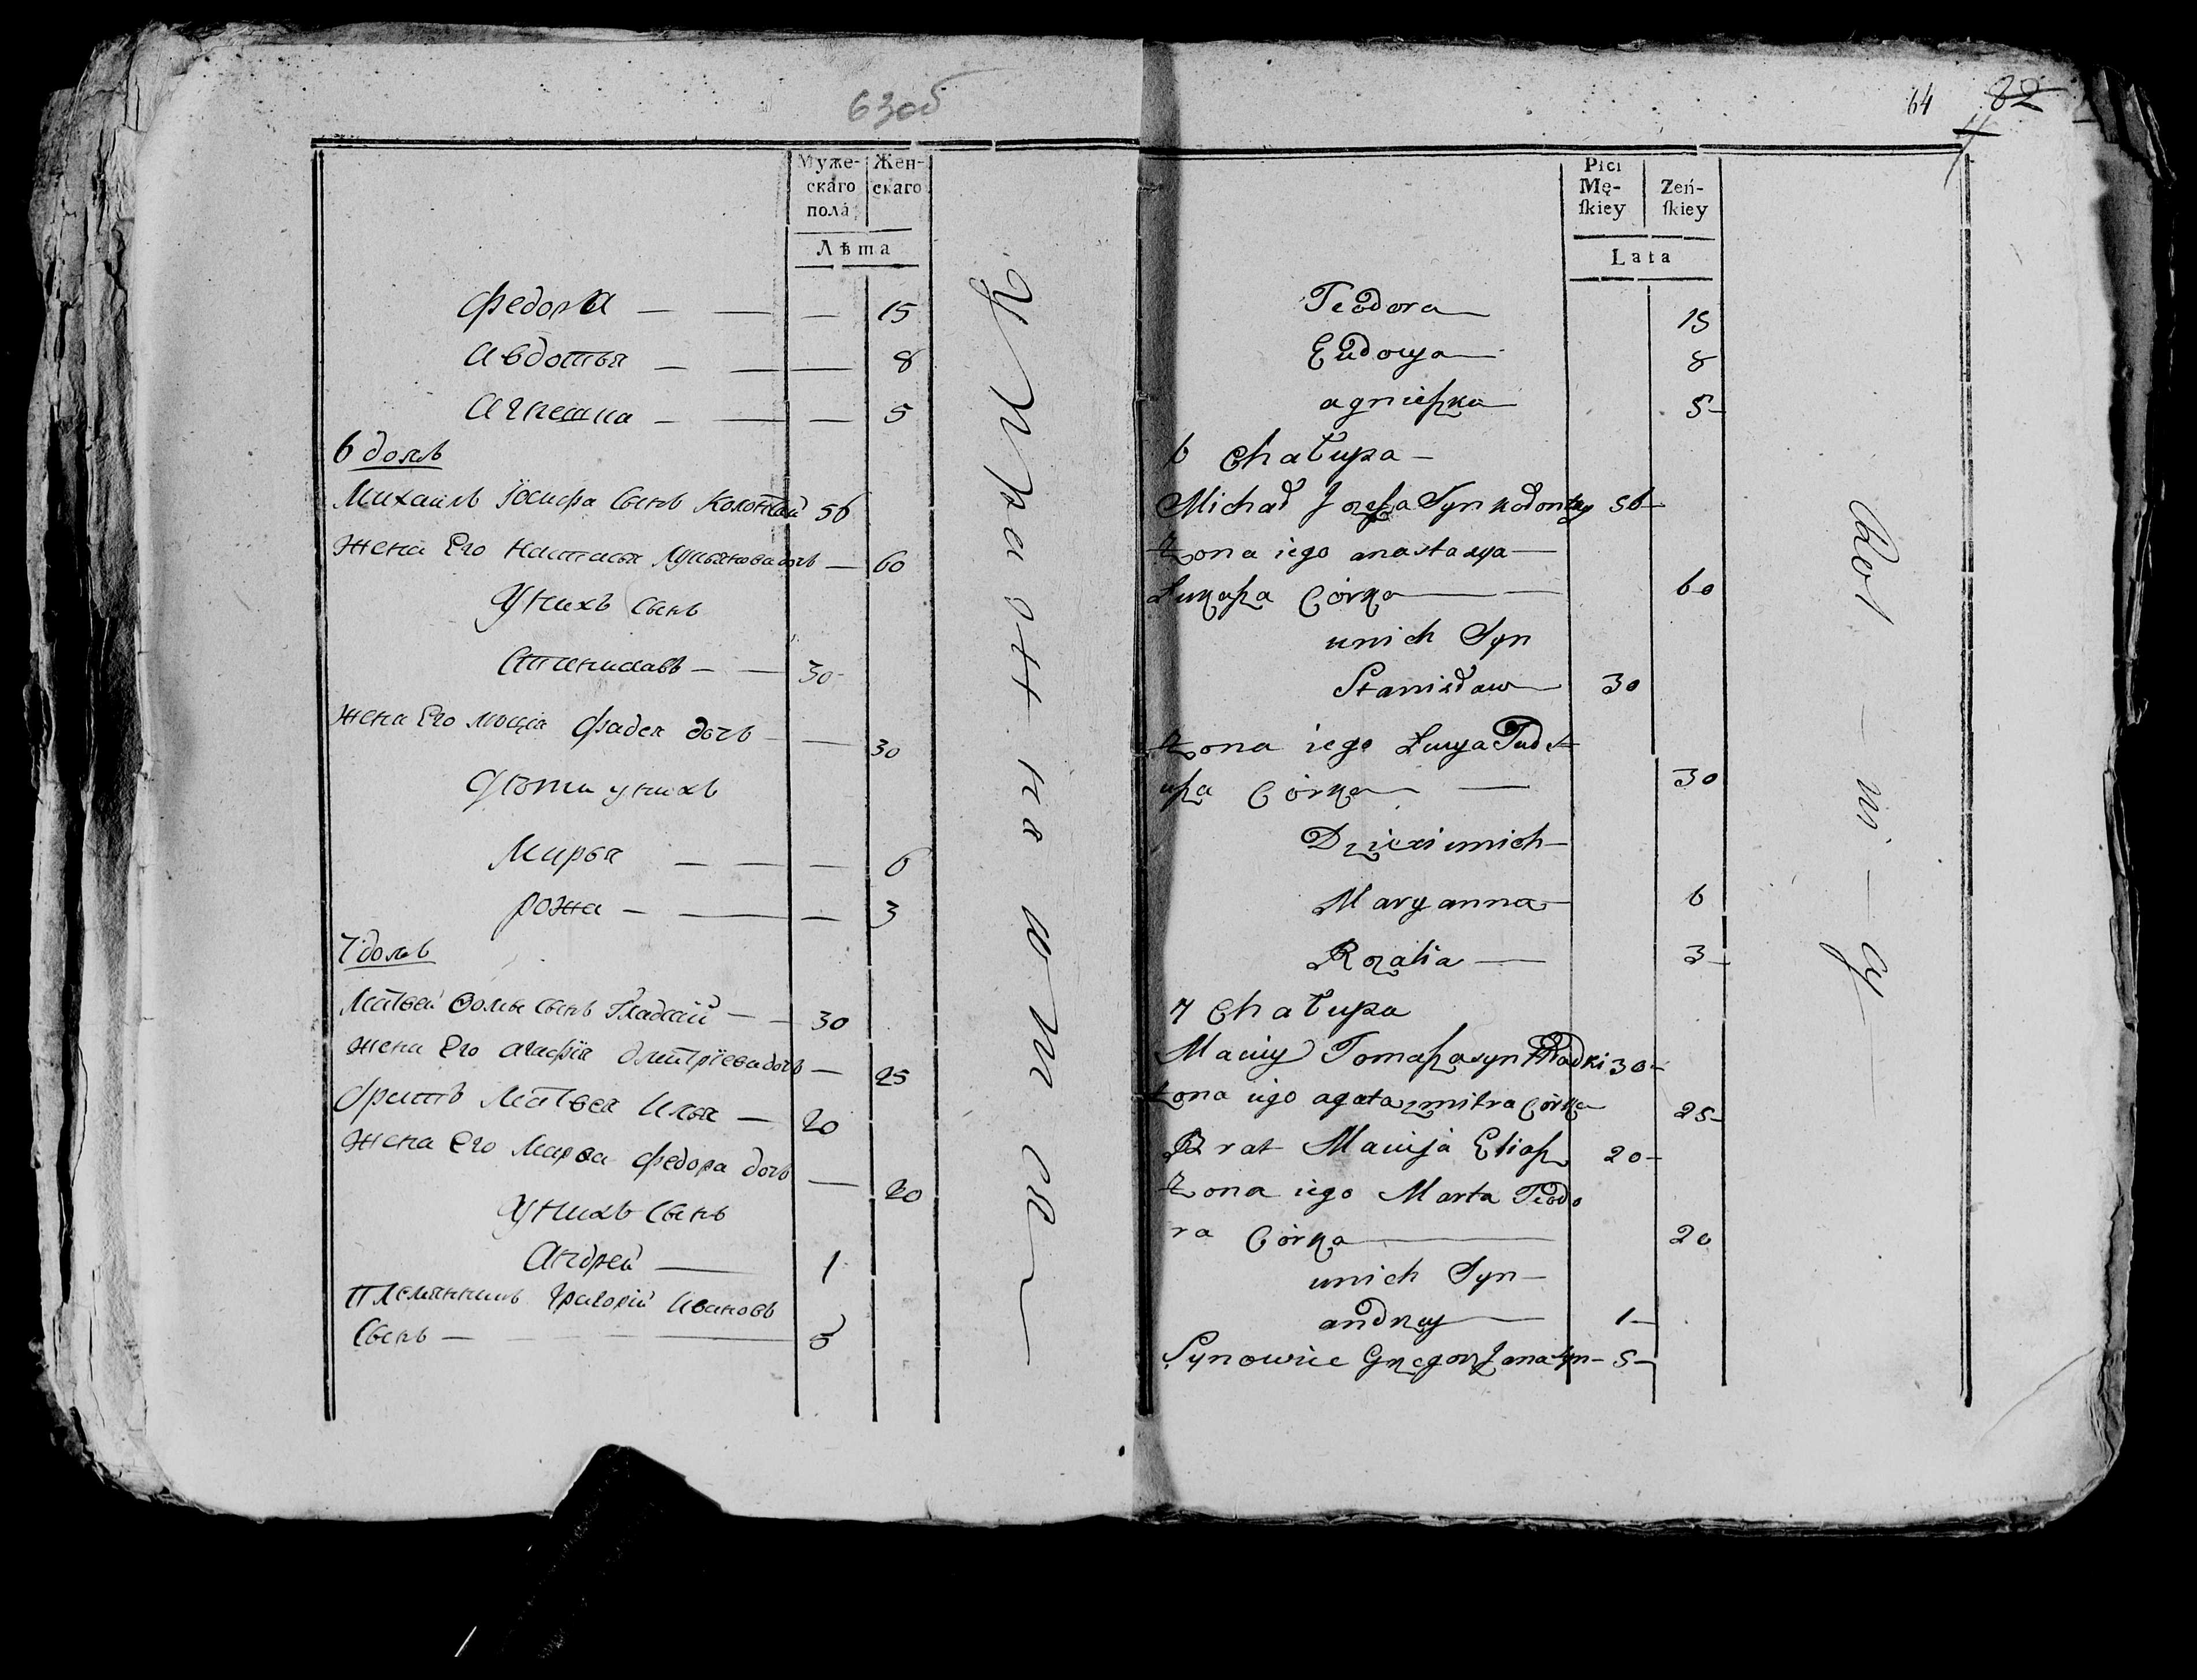 63об
Муже-
скаго
пола
Жен-
скаго
Лѣта
Федора — — — 15
Авдотья — — — 8
Агнешка — — — 5
6 домъ
Михаилъ Іосифа Сынъ Колонтай 56
Жена Его Настасья Лукьянова дочь — 60
У нихъ Сынъ
Станиславъ — — 30
Жена Его Люція Фадея дочь — — 30
Дѣти у нихъ
Марья — — — 6
Рожа — — — 3
7 домъ
Матвей Ѳомы Сынъ Гладкій — — 30
Жена Его Агафія Дмитріева дочь — 25
Братъ Матвея Илья — 20
Жена Его Марѳа Федора дочь — 20
У нихъ Сынъ
Андрей — 1
Племянникъ Григорій Ивановъ
Сынъ — — — — 5
64 82
Płci
Mę-
ſkiey
Zeń-
ſkiey
Lata
Teodora — 15
Eudocya — 8
agnieszka — 5 —
6 Chałupa —
Michał Jozefa Syn Kołontay 56 —
Zona iego anastasya —
Łukasza Córka — — 60
u nich Syn
Stanisław — 30
Zona iego Łucya Tade-
usza Córka — — 30
Dzieci u nich —
Maryanna — 6
Rozalia — 3 —
7 Chałupa
Maciey Tomasza syn Hładki 30 —
Zona iego agata zmitra Córka 25 —
Brat Macieja Eliasz 20 —
Zona iego Marta Teodo
ra Córka — 20
u nich Syn —
andrzey — 1 —
Synowiec Grzegorz Jana Syn — 5 —